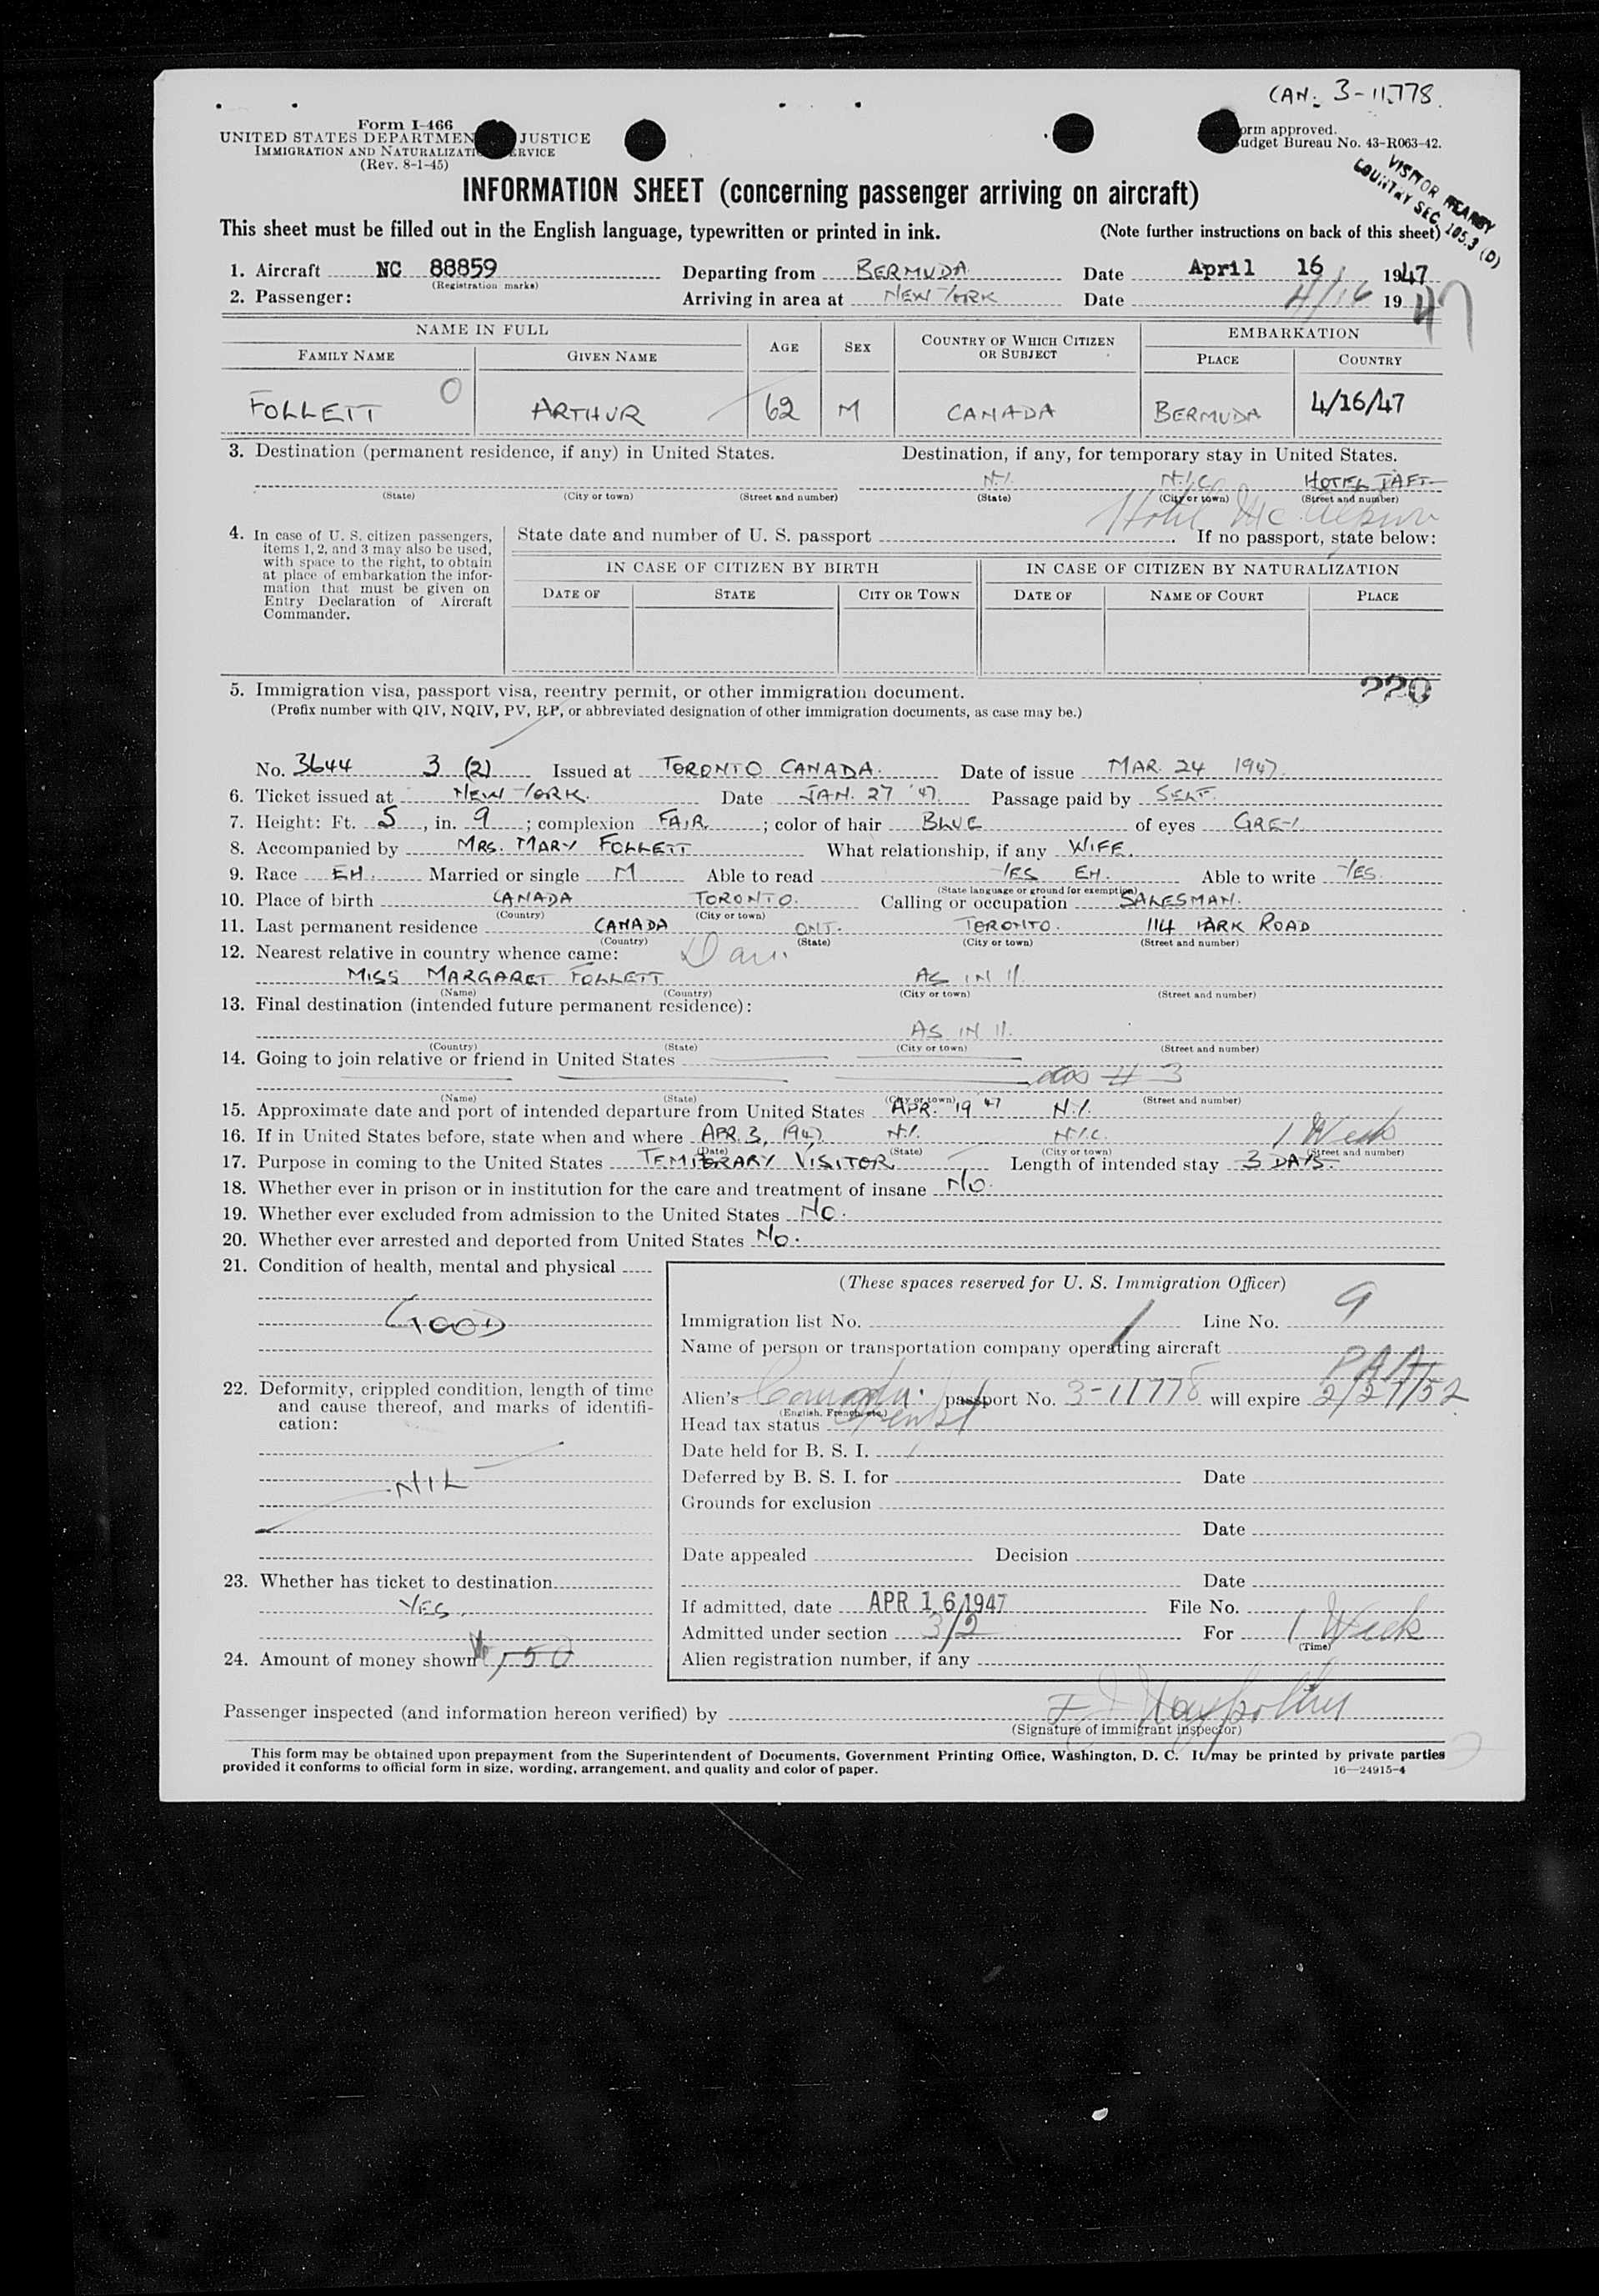 CAN. 3-11778.
Form I-466
UNITED STATES DEPARTMEN JUSTICE
IMMIGRATION AND NATURALIZATI ERVICE
(Rev. 8-1-45)
orm approved.
udget Bureau No. 43-R063-42.
VISITOR NEARBY
COUNTRY SEC 105.3 (D)
INFORMATION SHEET (concerning passenger arriving on aircraft)
This sheet must be filled out in the English language, typewritten or printed in ink. (Note further instructions on back of this sheet)
1. Aircraft NC 88859 Departing from BERMUDA Date April 16 1947
(Registration marks)
2. Passenger: Arriving in area at NEW YORK Date 4/16 1947
NAME IN FULL AGE SEX COUNTRY OF WHICH CITIZEN OR SUBJECT EMBARKATION
FAMILY NAME GIVEN NAME PLACE COUNTRY
FOLLETT 0 ARTHUR 62 M CANADA BERMUDA 4/16/47
3. Destination (permanent residence, if any) in United States. Destination, if any, for temporary stay in United States.
N.Y. N.Y.C. HOTEL TAFT
(State) (City or town) (Street and number) (State) (City or town) (Street and number)
Hotel McAlpin
4. In case of U. S. citizen passengers, items 1, 2, and 3 may also be used, with space to the right, to obtain at place of embarkation the information that must be given on Entry Declaration of Aircraft Commander.
State date and number of U. S. passport . If no passport, state below:
IN CASE OF CITIZEN BY BIRTH IN CASE OF CITIZEN BY NATURALIZATION
DATE OF STATE CITY OR TOWN DATE OF NAME OF COURT PLACE
5. Immigration visa, passport visa, reentry permit, or other immigration document. 220
(Prefix number with QIV, NQIV, PV, RP, or abbreviated designation of other immigration documents, as case may be.)
No. 3644 3 (2) Issued at TORONTO CANADA. Date of issue MAR. 24 1947.
6. Ticket issued at NEW YORK. Date JAN. 27 '47. Passage paid by SELF.
7. Height: Ft. 5, in. 9; complexion FAIR; color of hair BLUE of eyes GREY
8. Accompanied by MRS. MARY FOLLETT What relationship, if any WIFE.
9. Race EH. Married or single M Able to read YES EH. Able to write YES.
(State language or ground for exemption)
10. Place of birth CANADA TORONTO. Calling or occupation SALESMAN.
(Country) (City or town)
11. Last permanent residence CANADA ONT. TORONTO. 114 PARK ROAD
(Country) (State) (City or town) (Street and number)
12. Nearest relative in country whence came: Dau.
MISS MARGARET FOLLETT AS IN 11.
(Name) (Country) (City or town) (Street and number)
13. Final destination (intended future permanent residence):
AS IN 11.
(Country) (State) (City or town) (Street and number)
14. Going to join relative or friend in United States
# 3
(Name) (State) (City or town) (Street and number)
15. Approximate date and port of intended departure from United States APR. 19 47 N.Y.
16. If in United States before, state when and where APR. 3, 1947 N.Y. N.Y.C. 1 Week
(Date) (State) (City or town) (Street and number)
17. Purpose in coming to the United States TEMPORARY VISITOR Length of intended stay 3 DAYS.
18. Whether ever in prison or in institution for the care and treatment of insane NO.
19. Whether ever excluded from admission to the United States NO.
20. Whether ever arrested and deported from United States NO.
21. Condition of health, mental and physical
GOOD
22. Deformity, crippled condition, length of time and cause thereof, and marks of identification:
NIL
23. Whether has ticket to destination
YES.
24. Amount of money shown 150
(These spaces reserved for U. S. Immigration Officer)
Immigration list No. 1 Line No. 9
Name of person or transportation company operating aircraft
PAA
Alien's Canadn. passport No. 3-11778 will expire 2/27/52
(English, French, etc.)
Head tax status
Date held for B. S. I.
Deferred by B. S. I. for Date
Grounds for exclusion
Date
Date appealed Decision
Date
If admitted, date APR 16 1947 File No.
Admitted under section 3/2 For 1 Week
(Time)
Alien registration number, if any
Passenger inspected (and information hereon verified) by
(Signature of immigrant inspector)
This form may be obtained upon prepayment from the Superintendent of Documents, Government Printing Office, Washington, D. C. It may be printed by private parties
provided it conforms to official form in size, wording, arrangement, and quality and color of paper. 16—24915-4